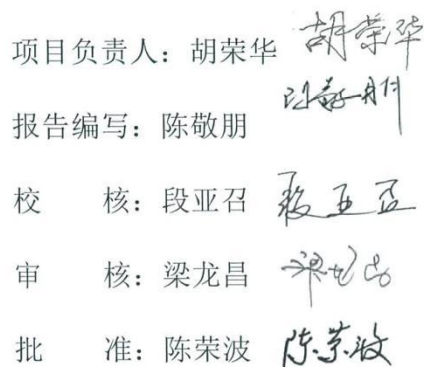 项目负责人：胡荣华 胡荣华
报告编写：陈敬朋
校　　核：段亚召
审　　核：梁龙昌
批　　准：陈荣波 陈荣波